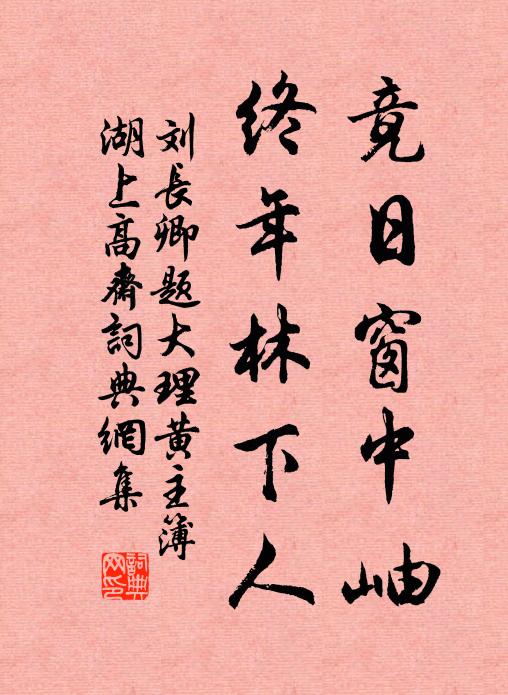 竟日窗中岫
终年林下人
刘長卿题大理黄主簿
湖上高齋詞典網集
詞典
网印